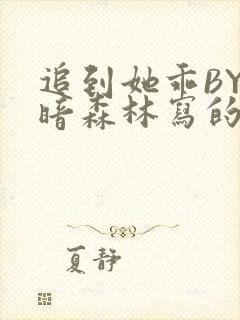 追到她乖BY
暗森林寫的
夏静